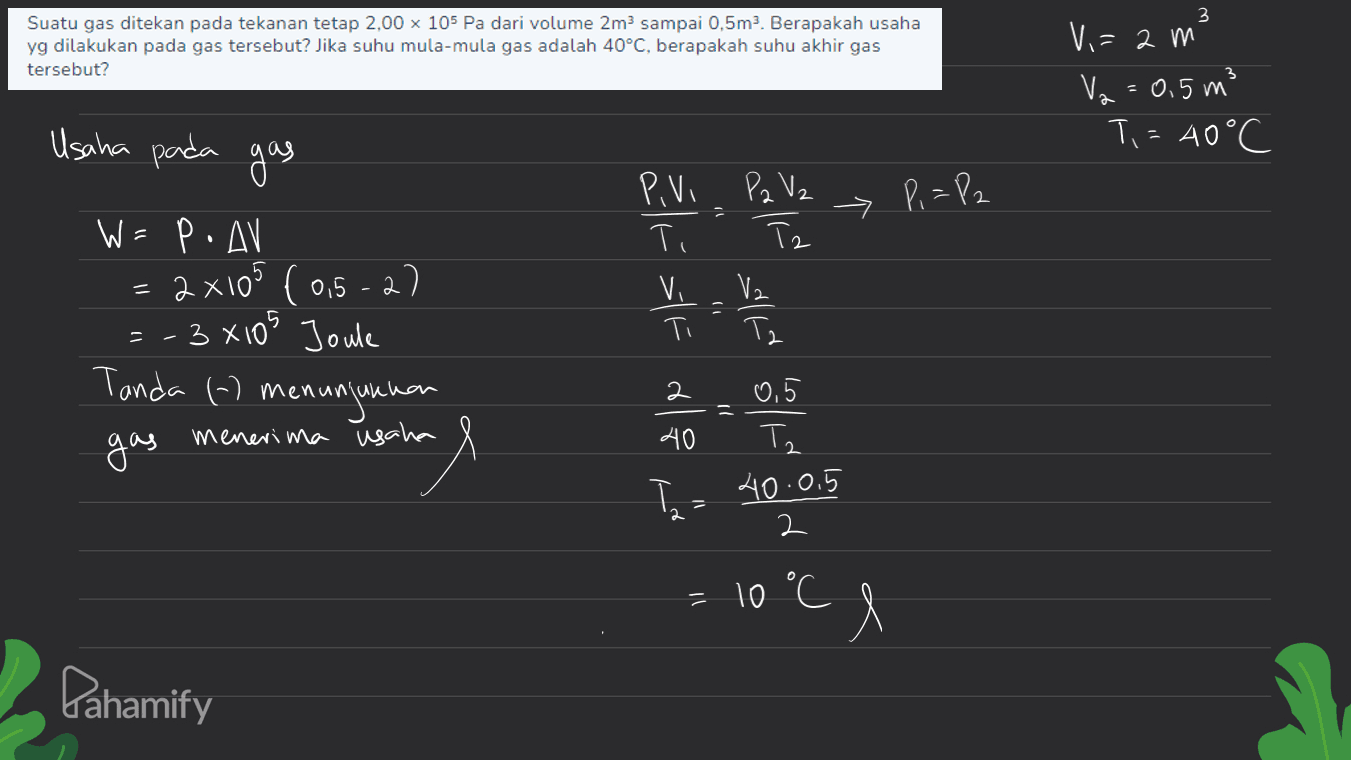 Suatu gas ditekan pada tekanan tetap 2,00 × 10⁵ Pa dari volume 2m³ sampai 0,5m³. Berapakah usaha
yg dilakukan pada gas tersebut? Jika suhu mula-mula gas adalah 40°C, berapakah suhu akhir gas
tersebut?
V₁ = 2 m³
V₂ = 0,5 m³
T₁ = 40°C
Usaha pada gas
W = P . ΔV
= 2 × 10⁵ (0,5 - 2)
= - 3 × 10⁵ Joule
Tanda (-) menunjukkan
gas menerima usaha
P₁V₁/T₁ = P₂V₂/T₂ → P₁ = P₂
V₁/T₁ = V₂/T₂
2/40 = 0,5/T₂
T₂ = 40 . 0,5/2
= 10 °C
Pahamify